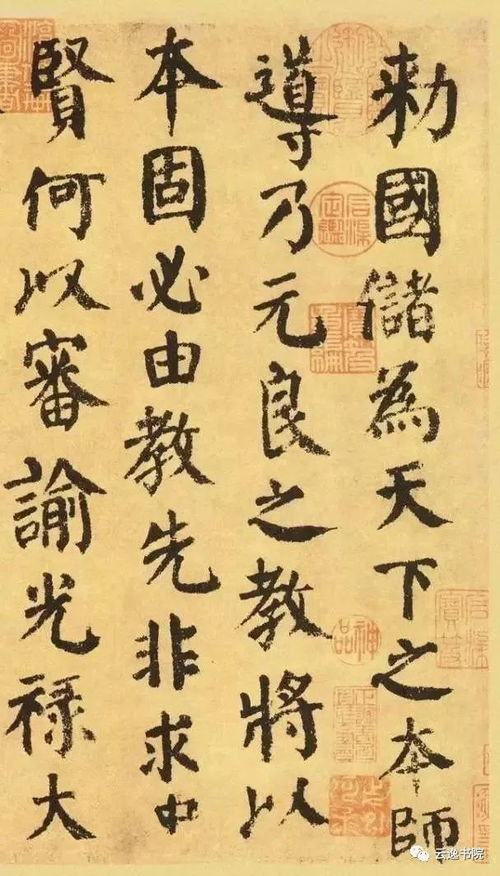 勅國儲為天下之本師
導乃元良之教將以
本固必由教先非求中
賢何以審諭光祿大
神品
云逸书院